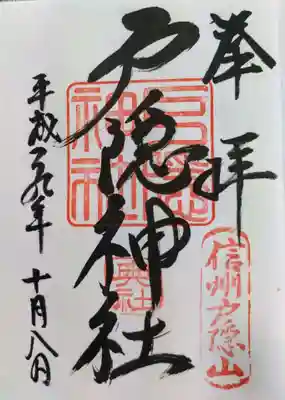 奉拝
信州戸隠山
戸隠神社
奥社
平成二九年十月八日